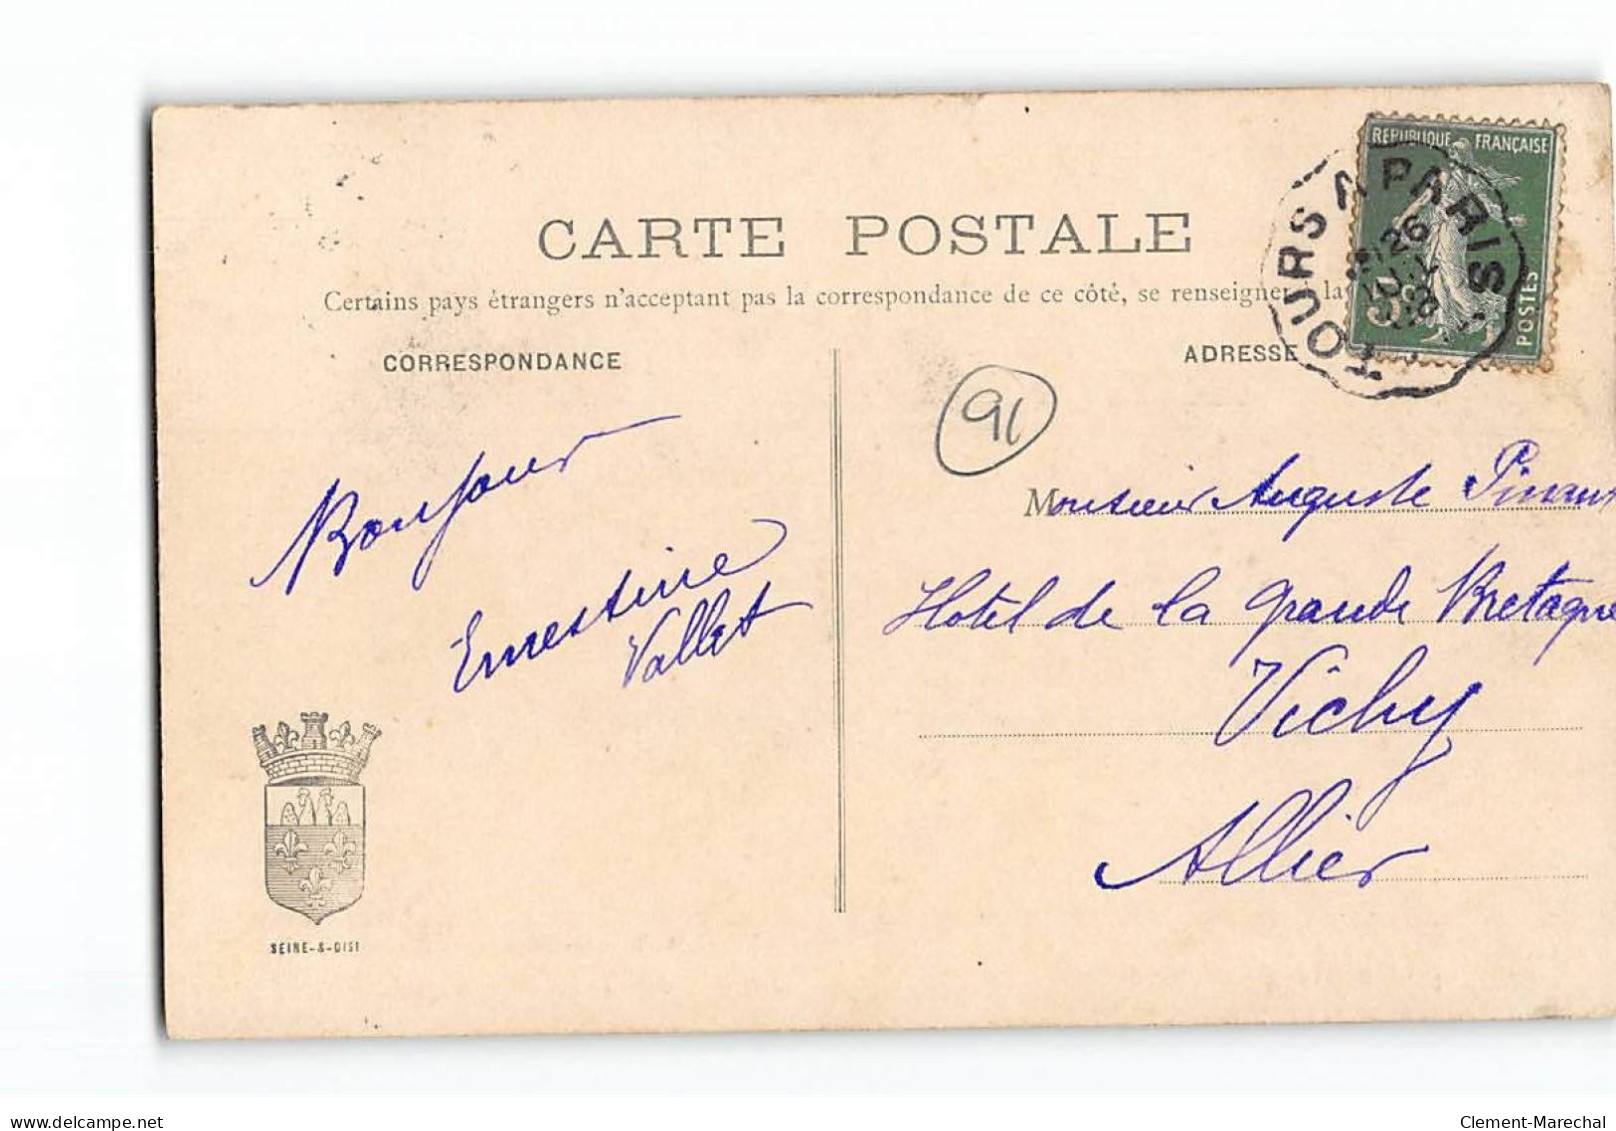 CARTE POSTALE
Certains pays étrangers n'acceptant pas la correspondance de ce côté, se renseigner à la
CORRESPONDANCE
ADRESSE
REPUBLIQUE FRANÇAISE
POSTES
TOURS A PARIS
26
91
Bonjour
Ernestine
Vallet
Monsieur Auguste
Hotel de la Grande Bretagne
Vichy
Allier
SEINE-&-OISE
delcampe.net
Clement-Marechal